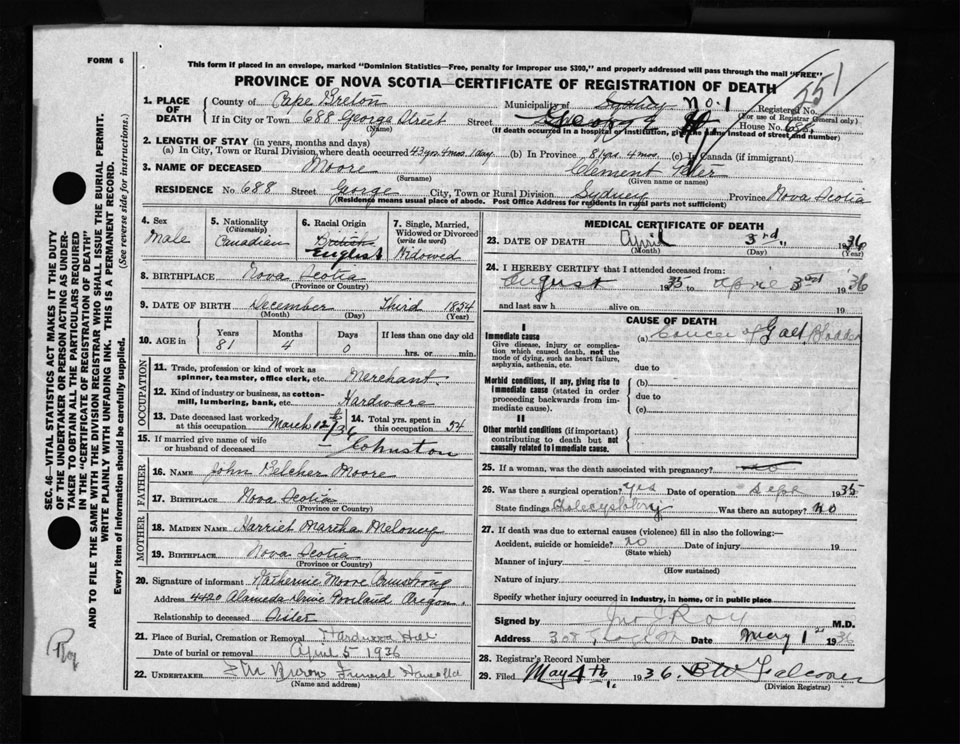 FORM 6
This form if placed in an envelope, marked "Dominion Statistics—Free, penalty for improper use $300," and properly addressed will pass through the mail "FREE"
551
PROVINCE OF NOVA SCOTIA—CERTIFICATE OF REGISTRATION OF DEATH
1. PLACE OF DEATH
County of Cape Breton Municipality of Sydney No. 1 Registered No.
(For use of Registrar General only)
If in City or Town 688 George Street Street George House No. 688
(Name) (If death occurred in a hospital or institution, give the name instead of street and number)
2. LENGTH OF STAY (in years, months and days)
(a) In City, Town or Rural Division where death occurred 43 yrs. 4 mos. 1 day (b) In Province 81 yrs 4 mos. (c) In Canada (if immigrant)
3. NAME OF DECEASED Moore Clement
(Surname) (Given name or names)
RESIDENCE No 688 Street George City, Town or Rural Division Sydney Province Nova Scotia
(Residence means usual place of abode. Post Office Address for residents in rural parts not sufficient)
4. Sex Male
5. Nationality (Citizenship) Canadian
6. Racial Origin British English
7. Single, Married, Widowed or Divorced (write the word) Widowed
8. BIRTHPLACE Nova Scotia
(Province or Country)
9. DATE OF BIRTH December Third 1854
(Month) (Day) (Year)
10. AGE in Years 81 Months 4 Days 0 If less than one day old hrs. or min.
OCCUPATION
11. Trade, profession or kind of work as spinner, teamster, office clerk, etc. Merchant.
12. Kind of industry or business, as cotton-mill, lumbering, bank, etc. Hardware
13. Date deceased last worked at this occupation March 14. Total yrs. spent in this occupation 54
15. If married give name of wife or husband of deceased Johnston
FATHER
16. NAME John Belcher Moore
17. BIRTHPLACE Nova Scotia
(Province or Country)
MOTHER
18. MAIDEN NAME Harriet Martha Meloney
19. BIRTHPLACE Nova Scotia
(Province or Country)
20. Signature of informant Katherine Moore Armstrong
Address 4420 Alameda Drive Portland Oregon.
Relationship to deceased Sister
21. Place of Burial, Cremation or Removal Hardwood Hill
Date of burial or removal April 5 1936
22. UNDERTAKER Funeral
(Name and address)
MEDICAL CERTIFICATE OF DEATH
23. DATE OF DEATH April 3rd 1936
(Month) (Day) (Year)
24. I HEREBY CERTIFY that I attended deceased from:
August 1935 to April 3rd 1936
and last saw h alive on 19
CAUSE OF DEATH
I
Immediate cause
Give disease, injury or complication which caused death, not the mode of dying, such as heart failure, asphyxia, asthenia, etc.
(a) Cancer of Gall Bladder
due to
Morbid conditions, if any, giving rise to immediate cause (stated in order proceeding backwards from immediate cause).
(b)
due to
(c)
II
Other morbid conditions (if important) contributing to death but not causally related to immediate cause.
25. If a woman, was the death associated with pregnancy? no
26. Was there a surgical operation? yes Date of operation Sept 1935
State findings Was there an autopsy? no
27. If death was due to external causes (violence) fill in also the following:—
Accident, suicide or homicide? no Date of injury 19
(State which)
Manner of injury
(How sustained)
Nature of injury
Specify whether injury occurred in industry, in home, or in public place
Signed by Jno J Roy M.D.
Address Date May 1st 1936
28. Registrar's Record Number
29. Filed May 4th, 1936. BW Falconer
(Division Registrar)
SEC. 46—VITAL STATISTICS ACT MAKES IT THE DUTY
OF THE UNDERTAKER OR PERSON ACTING AS UNDER-
TAKER TO OBTAIN ALL THE PARTICULARS REQUIRED
IN THE "CERTIFICATE OF REGISTRATION OF DEATH"
AND TO FILE THE SAME WITH THE DIVISION REGISTRAR WHO SHALL ISSUE THE BURIAL PERMIT.
WRITE PLAINLY WITH UNFADING INK. THIS IS A PERMANENT RECORD.
Every item of Information should be carefully supplied. (See reverse side for instructions.)
Roy